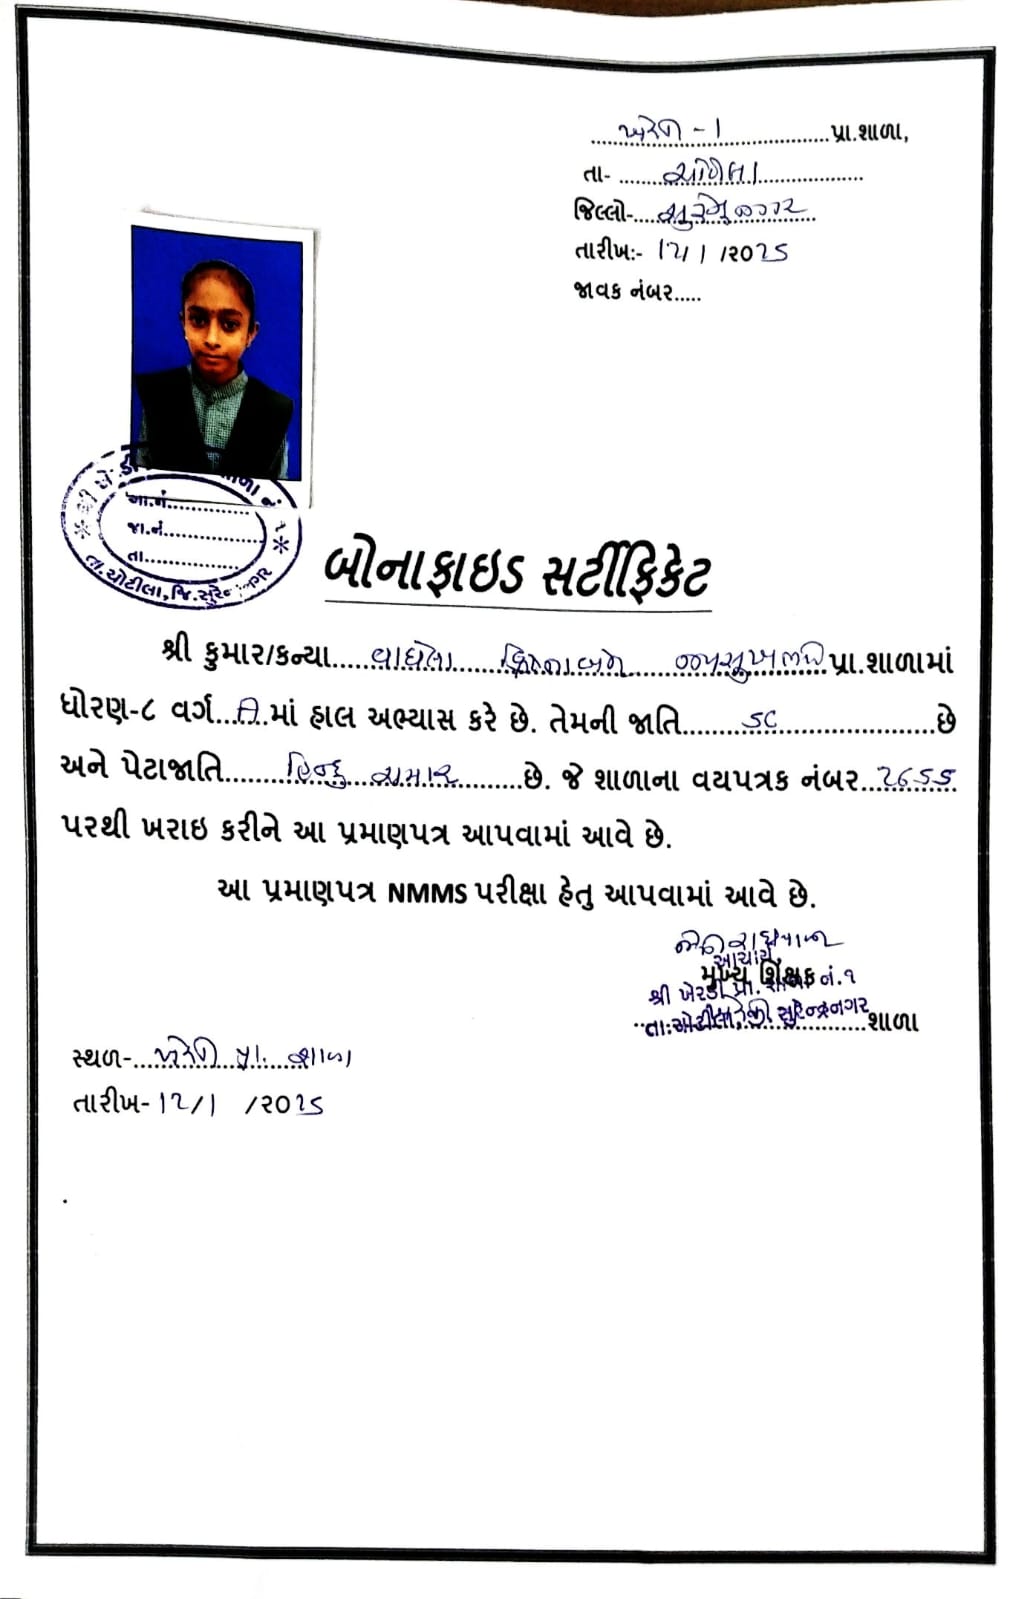 ખેરડી - 1 પ્રા.શાળા,
તા- ચોટીલા
જિલ્લો- સુરેન્દ્રનગર
તારીખ:- 12/1/૨૦25
જાવક નંબર.....
આ.નં.
જા.નં.
તા.
તા.ચોટીલા, જિ.સુરેન્દ્રનગર
બોનાફાઇડ સર્ટીફિકેટ
શ્રી કુમાર/કન્યા વાઘેલા જયસુખભાઈ પ્રા.શાળામાં
ધોરણ-૮ વર્ગ માં હાલ અભ્યાસ કરે છે. તેમની જાતિ SC છે
અને પેટાજાતિ હિન્દુ ચમાર છે. જે શાળાના વયપત્રક નંબર 2655
પરથી ખરાઇ કરીને આ પ્રમાણપત્ર આપવામાં આવે છે.
આ પ્રમાણપત્ર NMMS પરીક્ષા હેતુ આપવામાં આવે છે.
આચાર્ય
મુખ્ય શિક્ષક
શ્રી ખેરડી પ્રા. શાળા નં.૧
તા:ચોટીલા, જી સુરેન્દ્રનગર શાળા
સ્થળ- ખેરડી પ્રા. શાળા
તારીખ- 12/1 /૨૦25